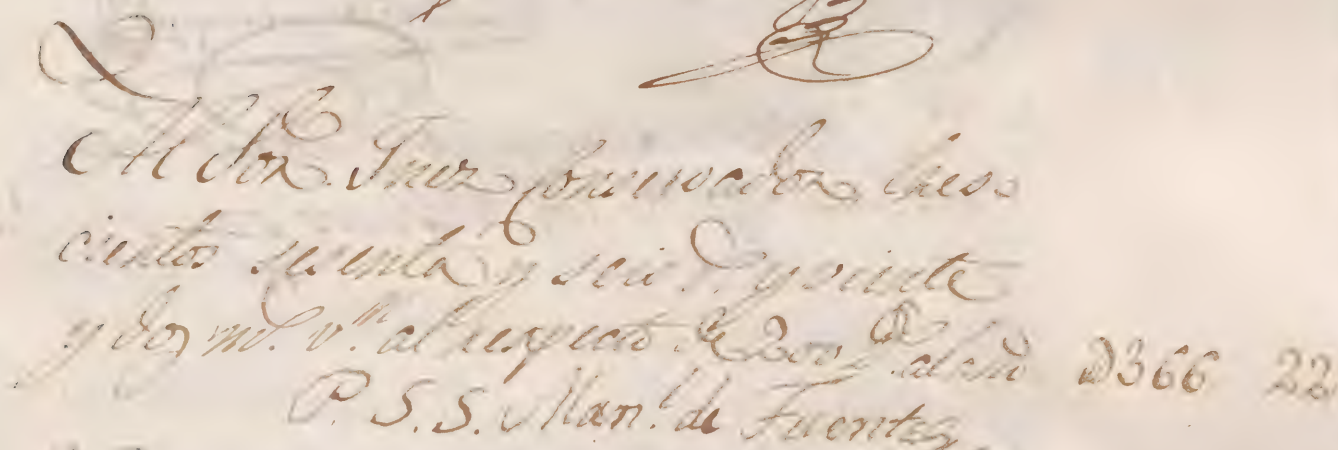 Al Sor. Juez Conservador tres
cientos sesenta y seis r. y veinte
y dos mrs. vn. al respecto de 200 Ds. al año D366 22
P. S. S. Manl. de Fuentes